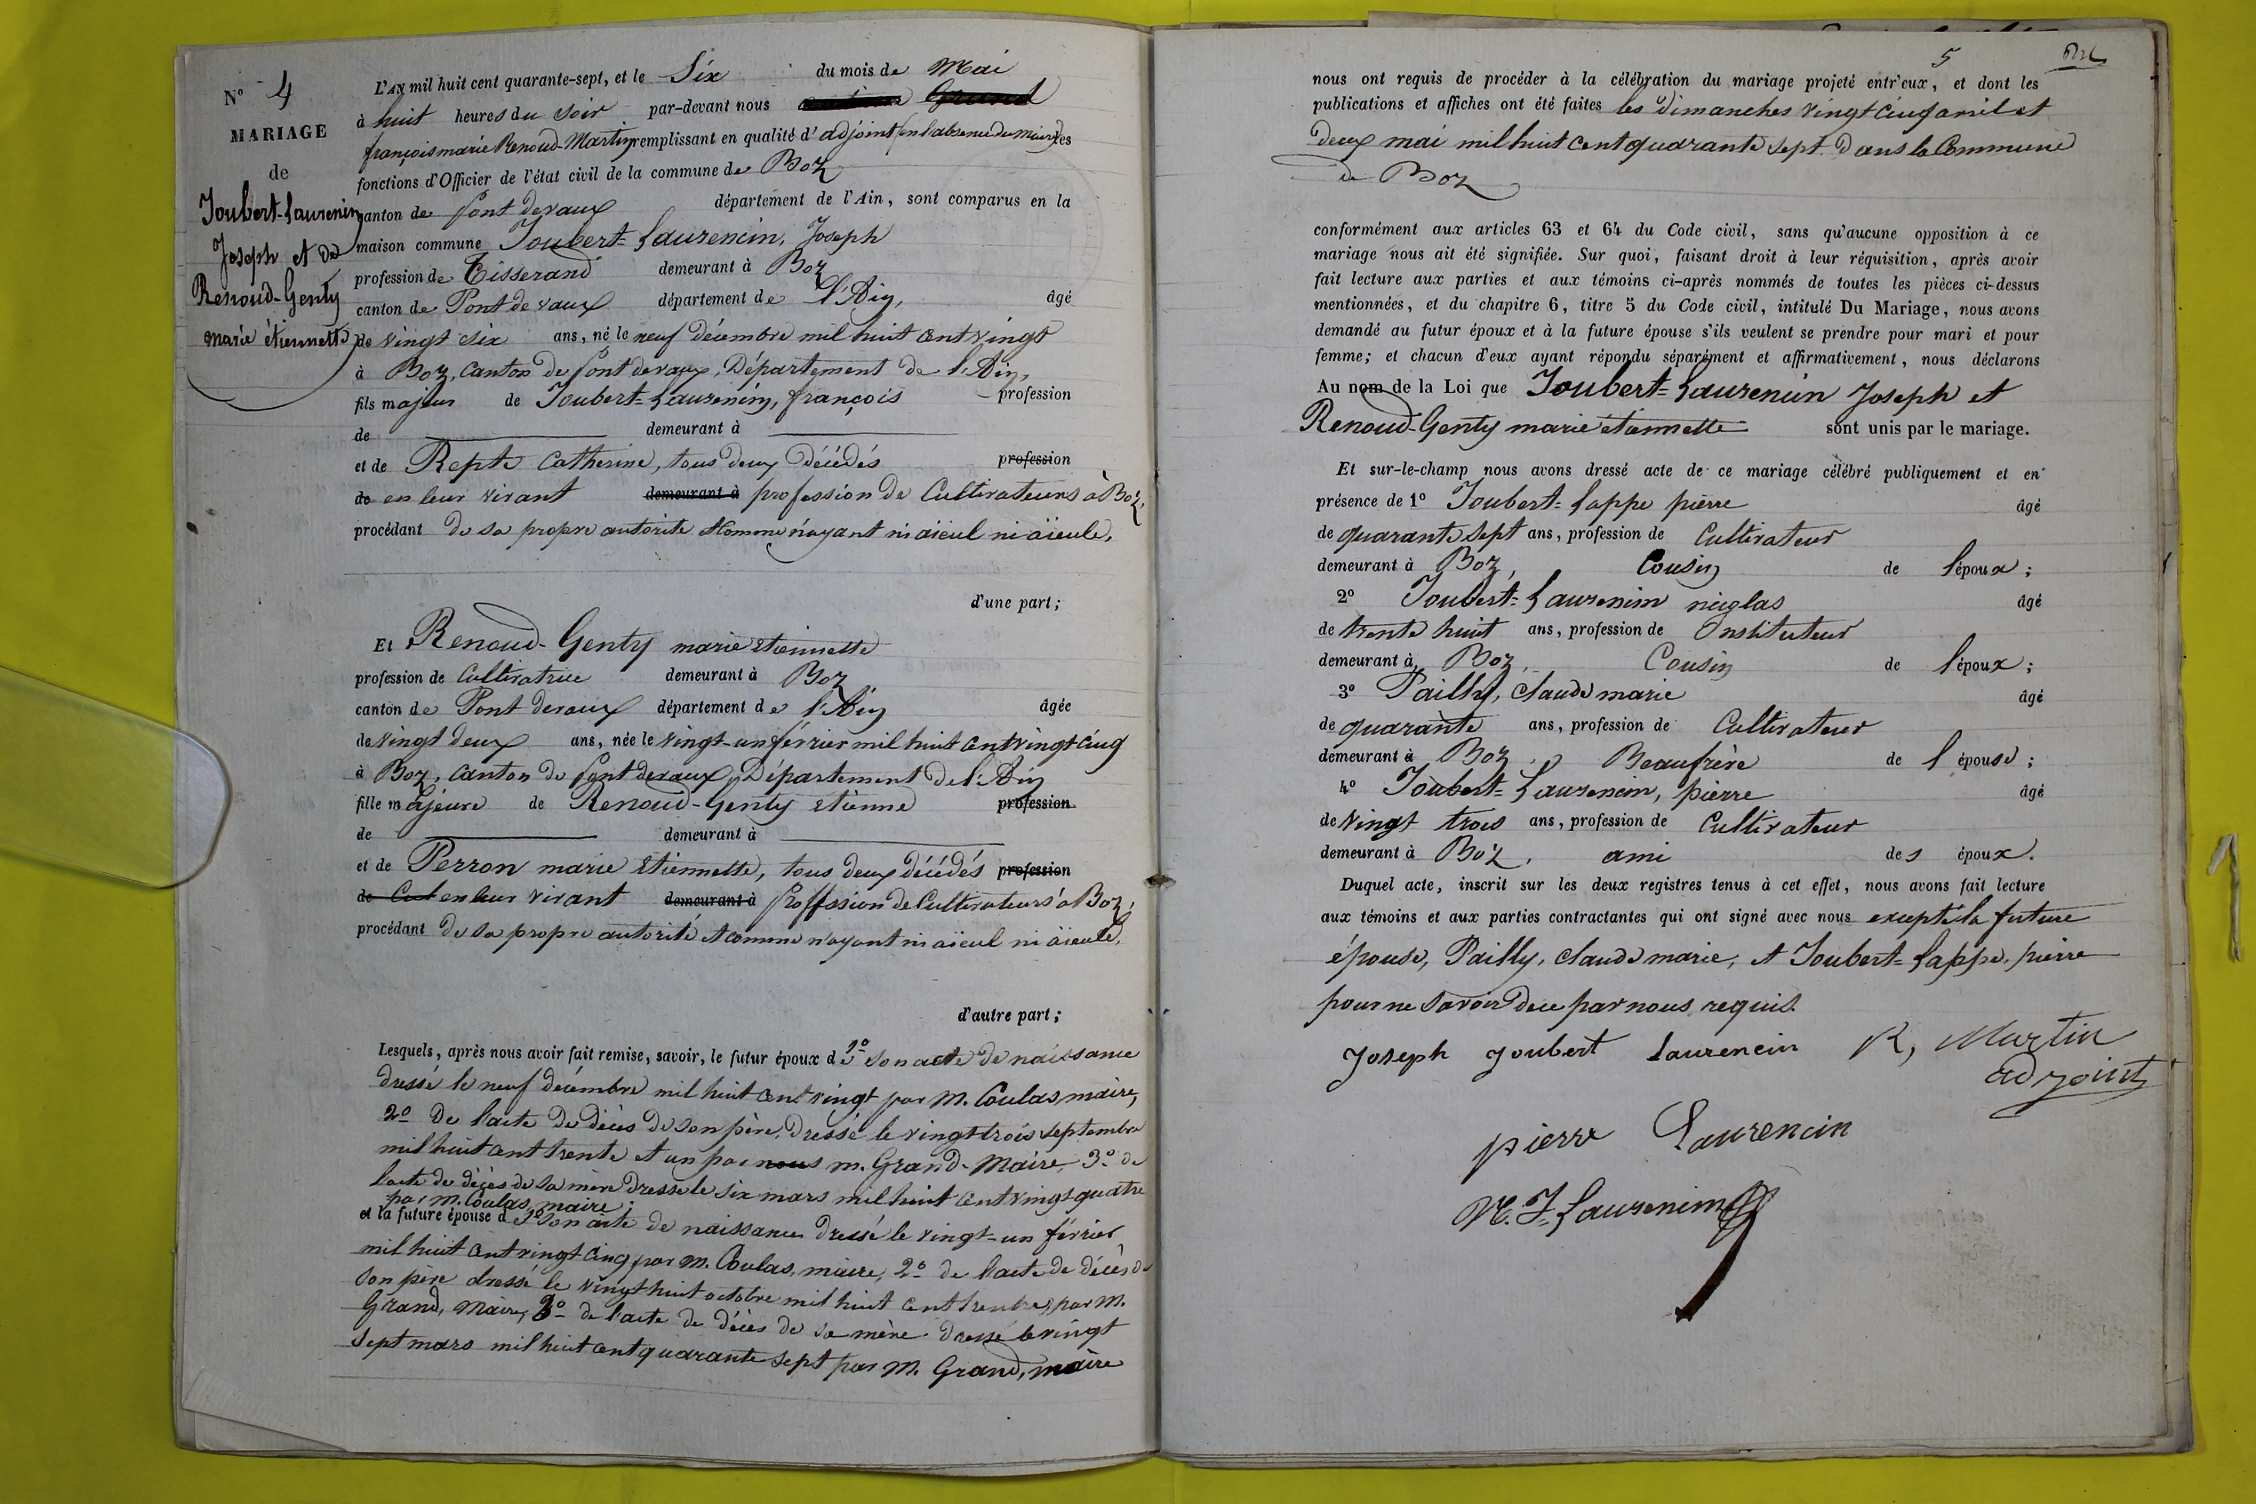 N° 4
MARIAGE
de
Joubert-Laurenin
Joseph et de
Renoud-Genty
marie étiennette
L'AN mil huit cent quarante-sept, et le Six du mois de Mai
à huit heures du soir par-devant nous Grand
françois marie Renoud-Martin remplissant en qualité d'adjoint (en l'absence du maire) les
fonctions d'Officier de l'état civil de la commune de Boz
canton de Pont devaux département de l'Ain, sont comparus en la
maison commune Joubert=Laurencin, Joseph
profession de Tisserand demeurant à Boz
canton de Pont de vaux département de l'Ain, âgé
de vingt six ans, né le neuf décembre mil huit cent vingt
à Boz, canton de Pont devaux, Département de l'Ain,
fils majeur de Joubert=Laurenin, françois profession
de demeurant à
et de Repte Catherine, tous deux décédés profession
de en leur vivant demeurant à profession de Cultivateurs à Boz,
procédant de sa propre autorité et comme n'ayant ni aïeul ni aïeule,
d'une part;
Et Renoud-Genty marie etiennette
profession de Cultivatrice demeurant à Boz
canton de Pont devaux département de l'Ain âgée
de vingt deux ans, née le vingt-un février mil huit cent vingt cinq
à Boz, canton de Pont devaux, Département de l'Ain
fille majeure de Renoud-Genty etienne profession
de demeurant à
et de Perron marie Etiennette, tous deux décédés profession
de Cul en leur vivant demeurant à proffession de Cultivateurs à Boz,
procédant de sa propre autorité et comme n'ayant ni aïeul ni aïeule,
d'autre part;
Lesquels, après nous avoir fait remise, savoir, le futur époux de 1° son acte de naissance
dressé le neuf décembre mil huit cent vingt par m. Coulas maire,
2° de l'acte de décès de son père, dressé le vingt trois septembre
mil huit cent trente et un par nous m. Grand-Maire, 3° de
l'acte de décès de sa mère dressé le six mars mil huit cent vingt quatre
par m. Coulas maire;
et la future épouse de 1° son acte de naissance dressé le vingt-un février
mil huit cent vingt cinq par m. Coulas, maire, 2° de l'acte de décès de
son père dressé le vingt huit octobre mil huit cent trente, par m.
Grand, Maire, 3° de l'acte de décès de sa mère dressé le vingt
sept mars mil huit cent quarante sept par m. Grand, maire
5
nous ont requis de procéder à la célébration du mariage projeté entr'eux, et dont les
publications et affiches ont été faites les dimanches vingt cinq avril et
deux mai mil huit cent quarante sept dans la Commune
de Boz
conformément aux articles 63 et 64 du Code civil, sans qu'aucune opposition à ce
mariage nous ait été signifiée. Sur quoi, faisant droit à leur réquisition, après avoir
fait lecture aux parties et aux témoins ci-après nommés de toutes les pièces ci-dessus
mentionnées, et du chapitre 6, titre 5 du Code civil, intitulé Du Mariage, nous avons
demandé au futur époux et à la future épouse s'ils veulent se prendre pour mari et pour
femme; et chacun d'eux ayant répondu séparément et affirmativement, nous déclarons
Au nom de la Loi que Joubert=Laurencin Joseph et
Renoud-Genty marie etiennette sont unis par le mariage.
Et sur-le-champ nous avons dressé acte de ce mariage célébré publiquement et en
présence de 1° Joubert=Lappe pierre âgé
de quarante sept ans, profession de Cultivateur
demeurant à Boz, Cousin de l'époux;
2° Joubert=Laurenim niuglas âgé
de trente huit ans, profession de Instituteur
demeurant à Boz, Cousin de l'époux;
3° Pailly, claude marie âgé
de quarante ans, profession de Cultivateur
demeurant à Boz, Beaufrère de l'épouse;
4° Joubert=Laurencin, pierre âgé
de vingt trois ans, profession de Cultivateur
demeurant à Boz, ami des époux.
Duquel acte, inscrit sur les deux registres tenus à cet effet, nous avons fait lecture
aux témoins et aux parties contractantes qui ont signé avec nous excepté la future
épouse, Pailly, claude marie, et Joubert=Lappe, pierre
pour ne savoir de ce par nous requis.
Joseph Joubert laurencin R, Martin
adjoint
pierre Laurencin
N. J= Laurenim